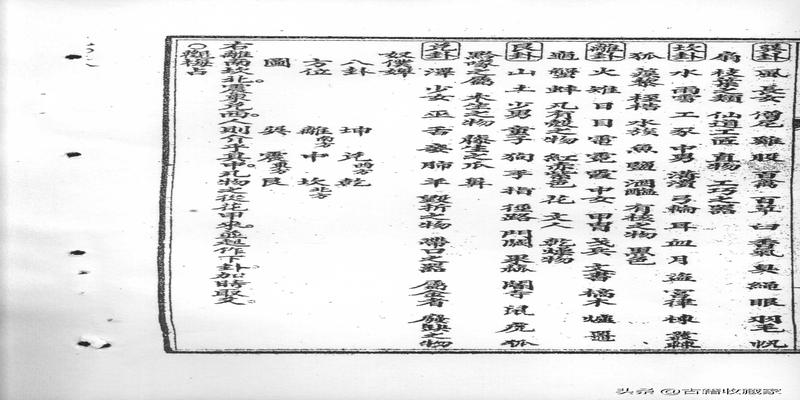 巽卦 風 長女 僧尼 雞 股 百禽 百草 臼 香氣 臭 繩 眼 羽毛 帆
扇 枝葉之類 仙道工匠 直物 工巧之器
坎卦 水 雨雪 工 豕 中男 溝瀆 弓輪 耳 血 月 盜 宮律 棟 叢棘
狐 蒺藜 桎梏 水族 魚 鹽 酒醢 有核之物 黑色
離卦 火 雉 日 目 電 霓 霞 中女 甲冑 戈兵 文書 槁木 爐
蟹 蚌 凡有殼之物 紅赤紫色 花 文人 乾燥物
艮卦 山 土 少男 童子 狗 手 指 徑路 門闕 果蓏 閽寺 鼠 虎 狐
黔喙之屬 木生之物 藤生之瓜 鼻
兌卦 澤 少女 巫 舌 妾 肺 羊 毀折之物 帶口之器 屬金者 廢缺之物
奴僕婢
八卦 坤 兌西方 乾
方位 離南方 中 坎北方
圖 巽 震東方 艮
右離南坎北。震東兌西。人則介于其中。凡物之從花甲來。並起作下卦。加時取爻。
○觀梅占
头条 @古籍收藏家